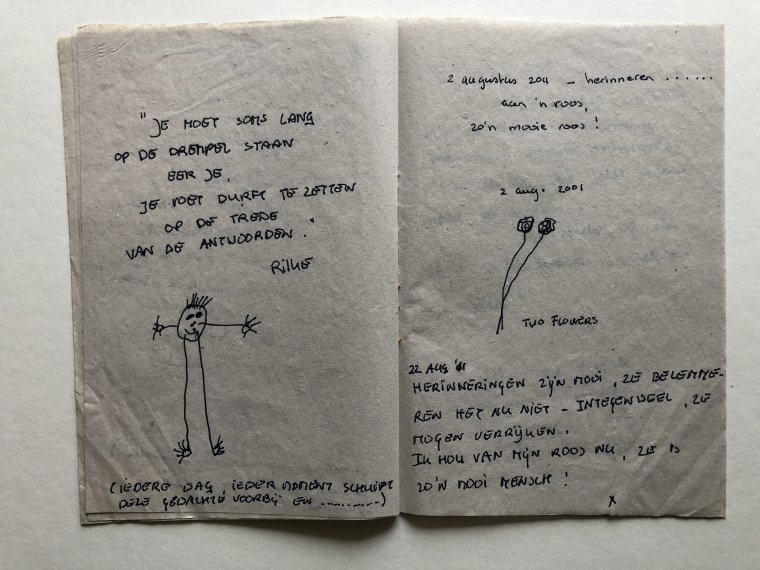 "JE MOET SOMS LANG
OP DE DREMPEL STAAN
EER JE,
JE VOET DURFT TE ZETTEN
OP DE TREDE
VAN DE ANTWOORDEN."
Rilke
(IEDERE DAG, IEDER MOMENT SCHUIFT
DEZE GEDACHTE VOORBIJ EN ...........)
2 augustus 2011 - herinneren ......
aan 'n roos,
zo'n mooie roos!
2 aug. 2001
TWO FLOWERS
22 AUG '01
HERINNERINGEN ZIJN MOOI, ZE BELEMME-
REN HET NU NIET - INTEGENDEEL, ZE
MOGEN VERRIJKEN.
IK HOU VAN MIJN ROOS NU, ZE IS
ZO'N MOOI MENSCH!
X